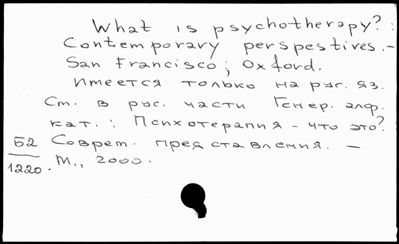 What is psychotherapy?:
Contemporary perspestives.-
San Francisco; Oxford.
Имеется только на рус. яз.
См. в рус. части Генер. алф.
кат.: Психотерапия - что это?
Б2 Соврем. представления. -
1220. М., 2000.